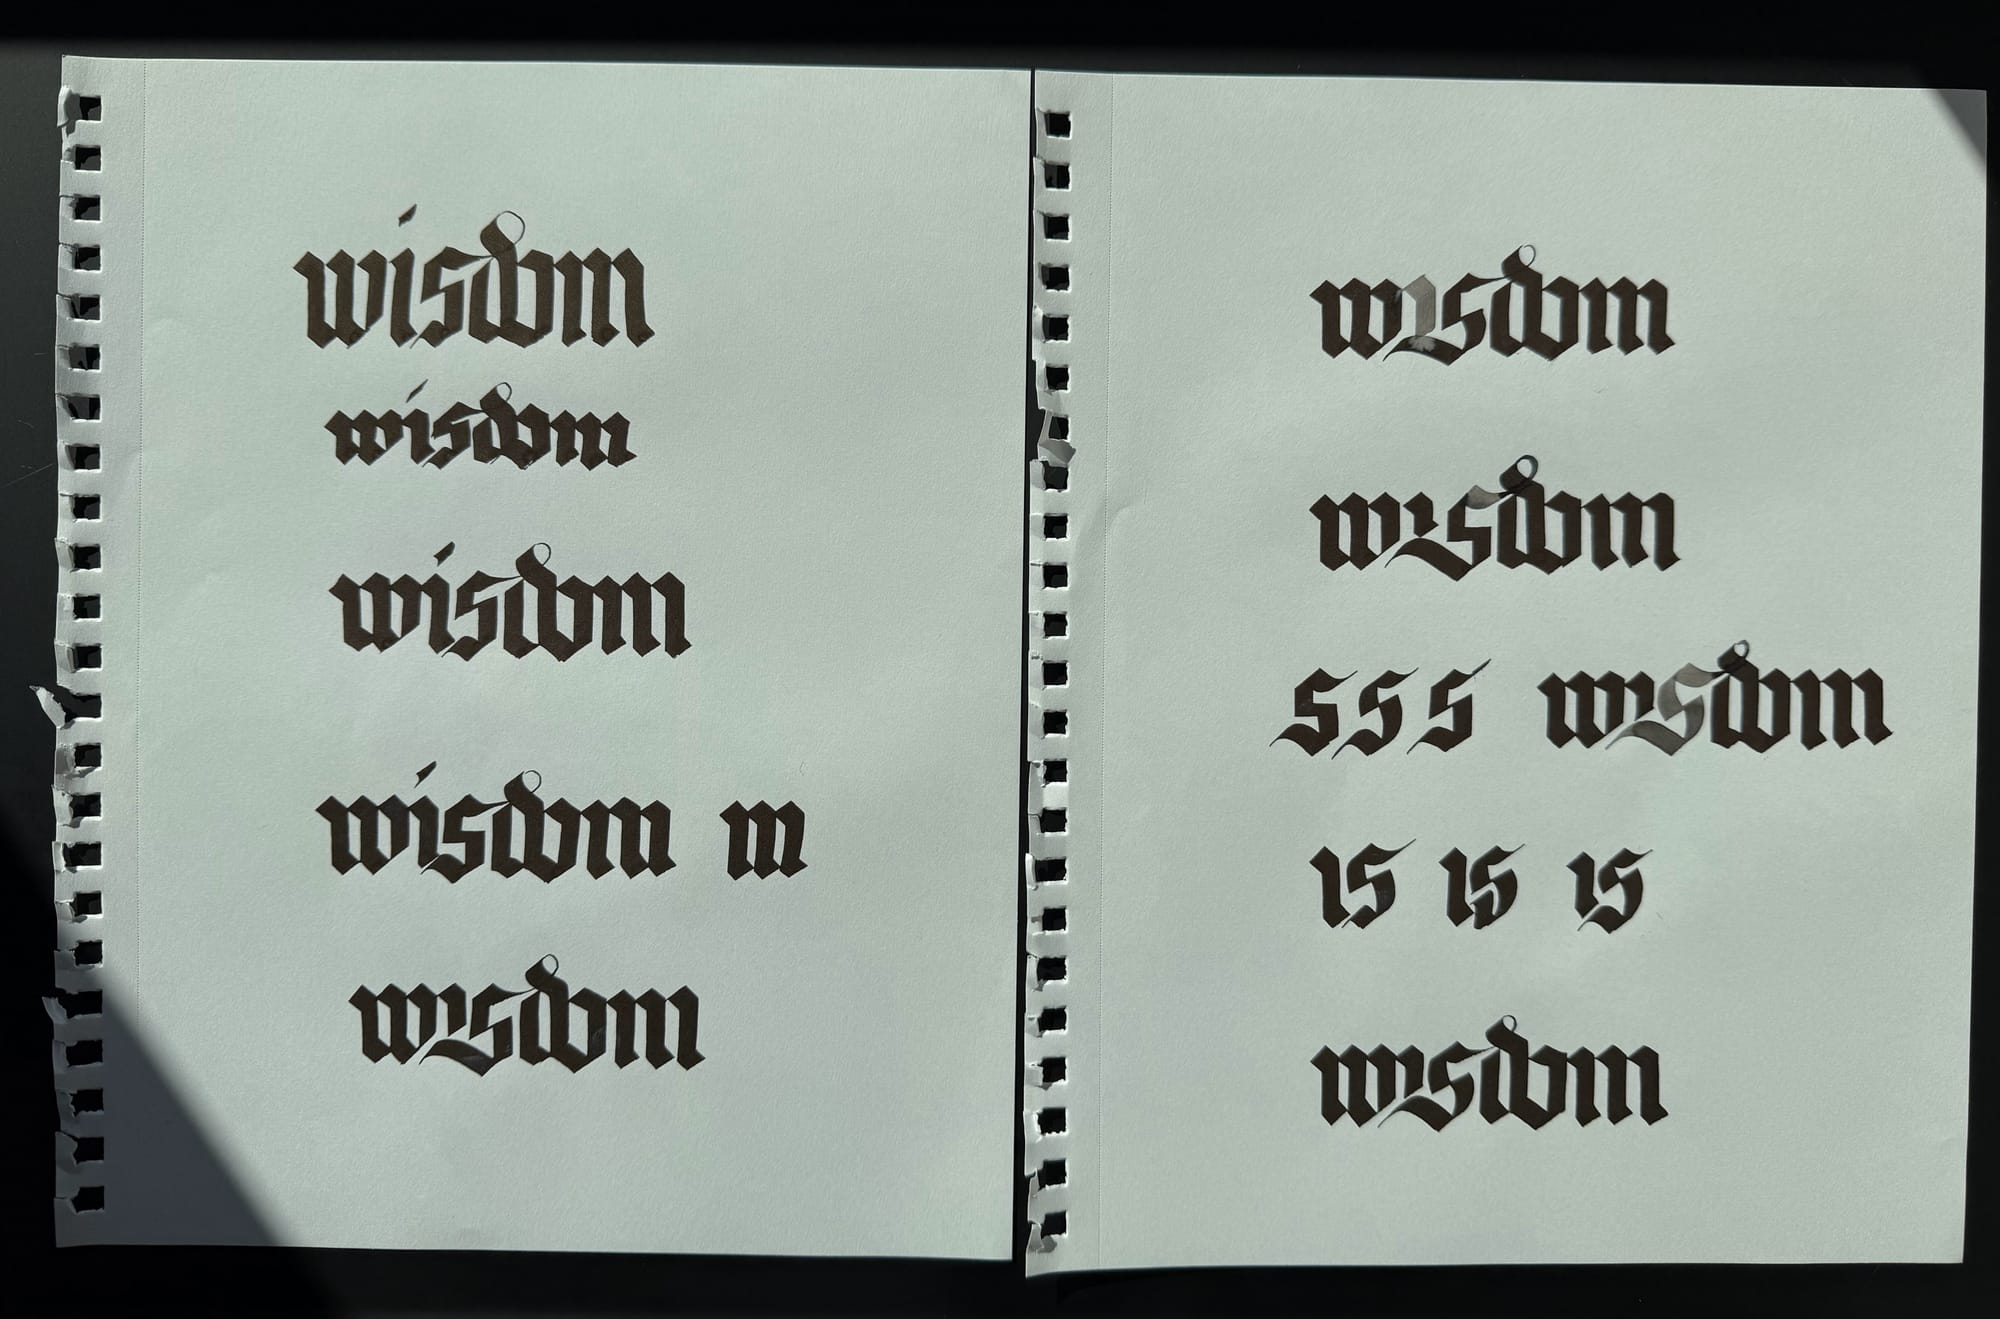 wisdom
wisdom
wisdom
wisdom m
wisdom
wisdom
wisdom
s s s wisdom
is is is
wisdom